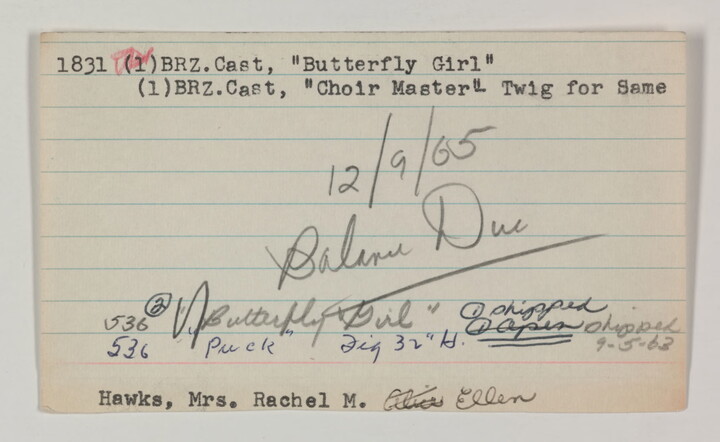 1831 (1)BRZ.Cast, "Butterfly Girl"
(1)BRZ.Cast, "Choir Master" - Twig for Same
12/9/65
Balance Due
536 (2) "Butterfly Girl" (1) shipped
(1) open shipped
536 "Puck" Fig 32" H. 9-5-63
Hawks, Mrs. Rachel M. Ellen